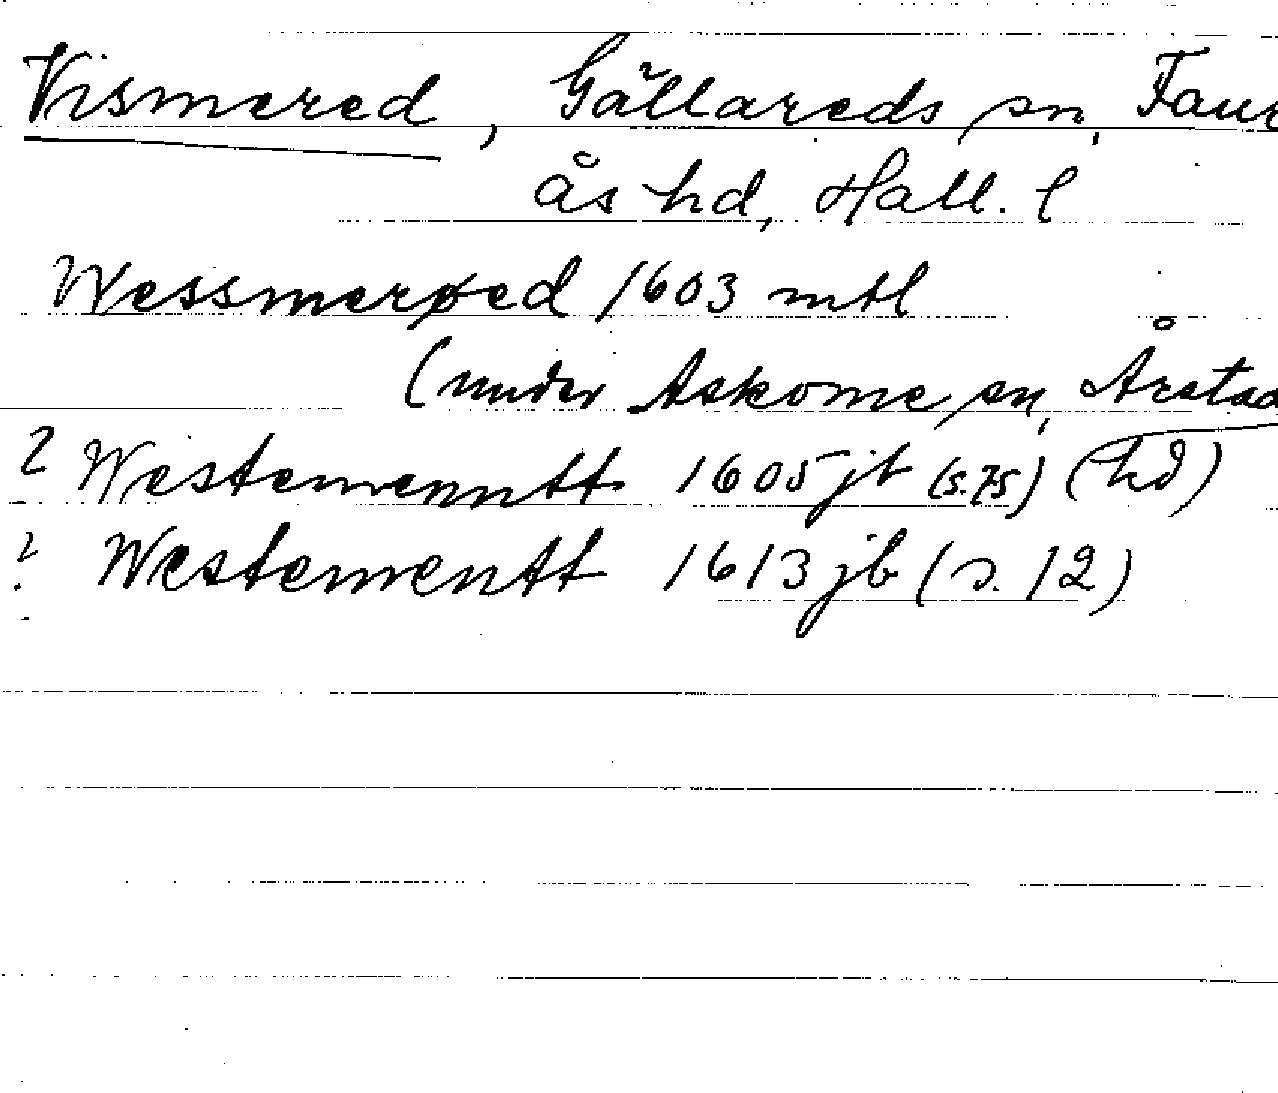 Vismered, Gällareds sn, Faur
ås hd, Hall. l
Wessmerøed 1603 mtl
(under Askome sn, Årstad
? Westemenntt 1605 jb (s. 75) (hd)
? Westementt 1613 jb (s. 12)